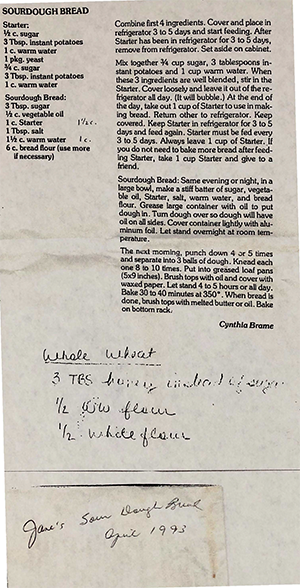 SOURDOUGH BREAD
Starter:
½ c. sugar
3 Tbsp. instant potatoes
1 c. warm water
1 pkg. yeast
¾ c. sugar
3 Tbsp. instant potatoes
1 c. warm water
Sourdough Bread:
3 Tbsp. sugar
½ c. vegetable oil
1 c. Starter 1½ c.
1 Tbsp. salt
1½ c. warm water 1 c.
6 c. bread flour (use more
if necessary)
Combine first 4 ingredients. Cover and place in
refrigerator 3 to 5 days and start feeding. After
Starter has been in refrigerator for 3 to 5 days,
remove from refrigerator. Set aside on cabinet.
Mix together ¾ cup sugar, 3 tablespoons in-
stant potatoes and 1 cup warm water. When
these 3 ingredients are well blended, stir in the
Starter. Cover loosely and leave it out of the re-
frigerator all day. (It will bubble.) At the end of
the day, take out 1 cup of Starter to use in mak-
ing bread. Return other to refrigerator. Keep
covered. Keep Starter in refrigerator for 3 to 5
days and feed again. Starter must be fed every
3 to 5 days. Always leave 1 cup of Starter. If
you do not need to bake more bread after feed-
ing Starter, take 1 cup Starter and give to a
friend.
Sourdough Bread: Same evening or night, in a
large bowl, make a stiff batter of sugar, vegeta-
ble oil, Starter, salt, warm water, and bread
flour. Grease large container with oil to put
dough in. Turn dough over so dough will have
oil on all sides. Cover container lightly with alu-
minum foil. Let stand overnight at room tem-
perature.
The next morning, punch down 4 or 5 times
and separate into 3 balls of dough. Knead each
one 8 to 10 times. Put into greased loaf pans
(5x9 inches). Brush tops with oil and cover with
waxed paper. Let stand 4 to 5 hours or all day.
Bake 30 to 40 minutes at 350°. When bread is
done, brush tops with melted butter or oil. Bake
on bottom rack.
Cynthia Brame
Whole Wheat
3 TBS honey instead of sugar
1/2 WW flour
1/2 White flour
Jane's Sour Dough Bread
April 1993